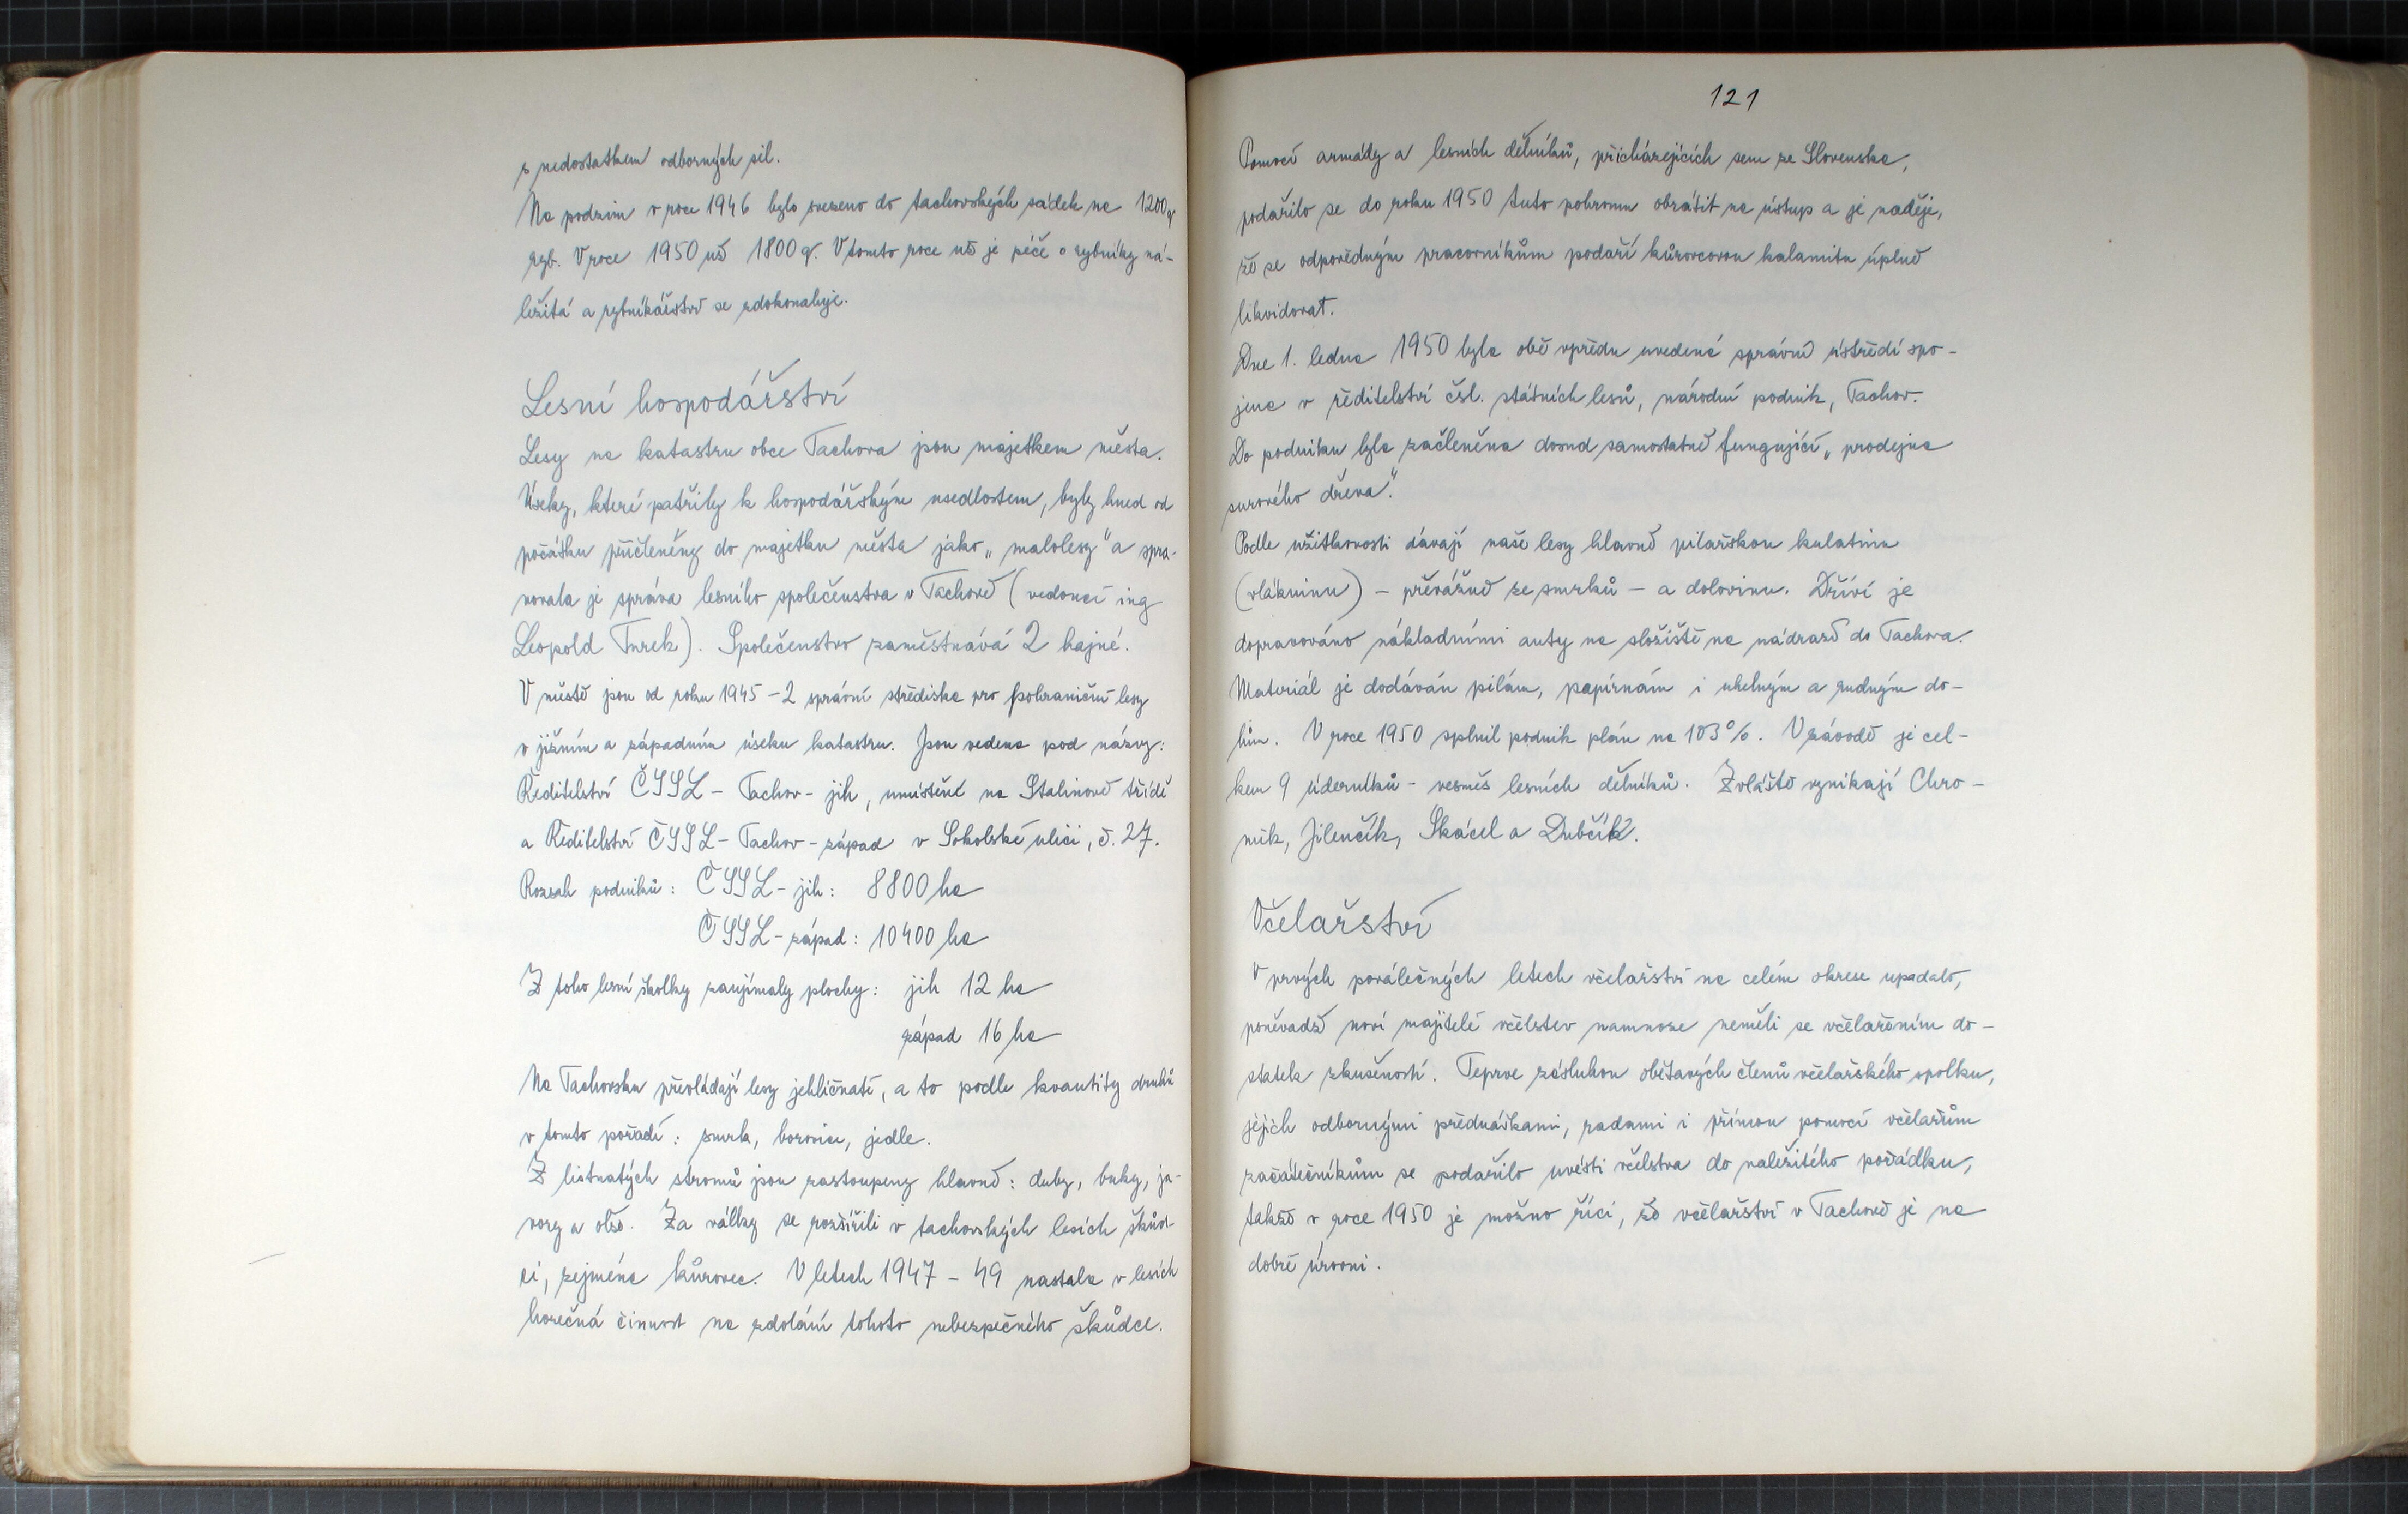 s nedostatkem odborných sil.
Na podzim v roce 1946 bylo svezeno do tachovských sádek na 1200 q
ryb. V roce 1950 už 1800 q. V tomto roce už je péče o rybníky ná-
ležitá a rybníkářství se zdokonaluje.
Lesní hospodářství
Lesy na katastru obce Tachova jsou majetkem města.
Úseky, které patřily k hospodářským usedlostem, byly hned od
počátku přičleněny do majetku města jako „malolesy" a spra-
vovala je správa lesního společenstva v Tachově (vedoucí ing
Leopold Turek). Společenstvo zaměstnává 2 hajné.
V městě jsou od roku 1945 - 2 správní střediska pro pohraniční lesy
v jižním a západním úseku katastru. Jsou vedena pod názvy:
Ředitelství ČSSL - Tachov - jih, umístěné na Stalinově třídě
a Ředitelství ČSSL - Tachov - západ v Sokolské ulici, č. 27.
Rozsah podniků: ČSSL - jih: 8800 ha
ČSSL - západ: 10400 ha
Z toho lesní školky zaujímaly plochy: jih 12 ha
západ 16 ha
Na Tachovsku převládají lesy jehličnaté, a to podle kvantity druhů
v tomto pořadí: smrk, borovice, jedle.
Z listnatých stromů jsou zastoupeny hlavně: duby, buky, ja-
vory a olše. Za války se rozšířili v tachovských lesích škůd-
ci, zejména kůrovec. V letech 1947 - 49 nastala v lesích
horečná činnost na zdolání tohoto nebezpečného škůdce.
121
Pomocí armády a lesních dělníků, přicházejících sem ze Slovenska,
podařilo se do roku 1950 tuto pohromu obrátit na ústup a je naděje,
že se odpovědným pracovníkům podaří kůrovcovou kalamitu úplně
likvidovat.
Dne 1. ledna 1950 byla obě vpředu uvedená správní ústředí spo-
jena v ředitelství čsl. státních lesů, národní podnik, Tachov.
Do podniku byla začleněna dosud samostatně fungující „prodejna
surového dřeva."
Podle užitkovosti dávají naše lesy hlavně pilařskou kulatinu
(vlákninu) - převážně ze smrků - a dolovinu. Dříví je
dopravováno nákladními auty na složiště na nádraží do Tachova.
Materiál je dodáván pilám, papírnám i uhelným a rudným do-
lům. V roce 1950 splnil podnik plán na 103%. V závodě je cel-
kem 9 úderníků - vesměs lesních dělníků. Zvláště vynikají Chro-
mík, Jilenčík, Skácel a Dubčík.
Včelařství
V prvých poválečných letech včelařství na celém okrese upadalo,
poněvadž noví majitelé včelstev namnoze neměli se včelařením do-
statek zkušeností. Teprve zásluhou obětavých členů včelařského spolku,
jejich odbornými přednáškami, radami i přímou pomocí včelařům
začátečníkům se podařilo uvésti včelstva do náležitého pořádku,
takže v roce 1950 je možno říci, že včelařství v Tachově je na
dobré úrovni.